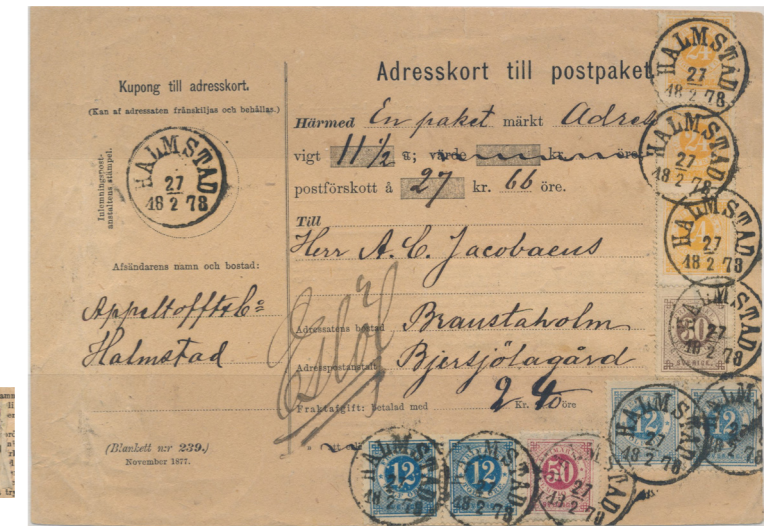 Kupong till adresskort.
(Kan af adressaten frånskiljas och behållas.)
Inlemningspost-
anstaltens stämpel.
HALMSTAD
27
18 2 78
Afsändarens namn och bostad:
Appeltofft & Co
Halmstad
(Blankett n:r 239.)
November 1877.
Adresskort till postpaket.
Härmed En paket märkt Adress
vigt 11 1/2 ℔; värde kr. öre;
postförskott å 27 kr. 66 öre.
Till
Herr A. C. Jacobaeus
Adressatens bostad Braustaholm
Adresspostanstalt Bjersjölagård
Eslöf
Fraktafgift: betalad med 2 Kr. 40 öre
HALMSTAD
27
18 2 78
24
HALMSTAD
27
18 2 78
24
HALMSTAD
27
18 2 78
HALMSTAD
27
18 2 78
HALMSTAD
27
18 2 78
12
12
HALMSTAD
27
18 2 78
12
HALMSTAD
27
18 2 78
12
50
27
18 2 78